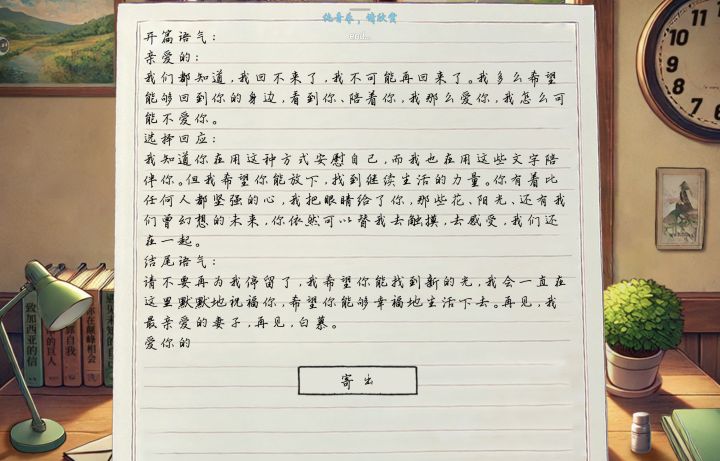 纯音乐，请欣赏
end...
开篇语气：
亲爱的：
我们都知道，我回不来了，我不可能再回来了。我多么希望
能够回到你的身边，看到你、陪着你，我那么爱你，我怎么可
能不爱你。
选择回应：
我知道你在用这种方式安慰自己，而我也在用这些文字陪
伴你。但我希望你能放下，找到继续生活的力量。你有着比
任何人都坚强的心，我把眼睛给了你，那些花、阳光、还有我
们曾幻想的未来，你依然可以替我去触摸，去感受，我们还
在一起。
结尾语气：
请不要再为我停留了，我希望你能找到新的光，我会一直在
这里默默地祝福你，希望你能够幸福地生活下去。再见，我
最亲爱的妻子，再见，白慕。
爱你的
寄出
10
11
12
9
8
7
致加西亚的信
的巨人
靠自我
你在巅峰相会
遇见未知的自己